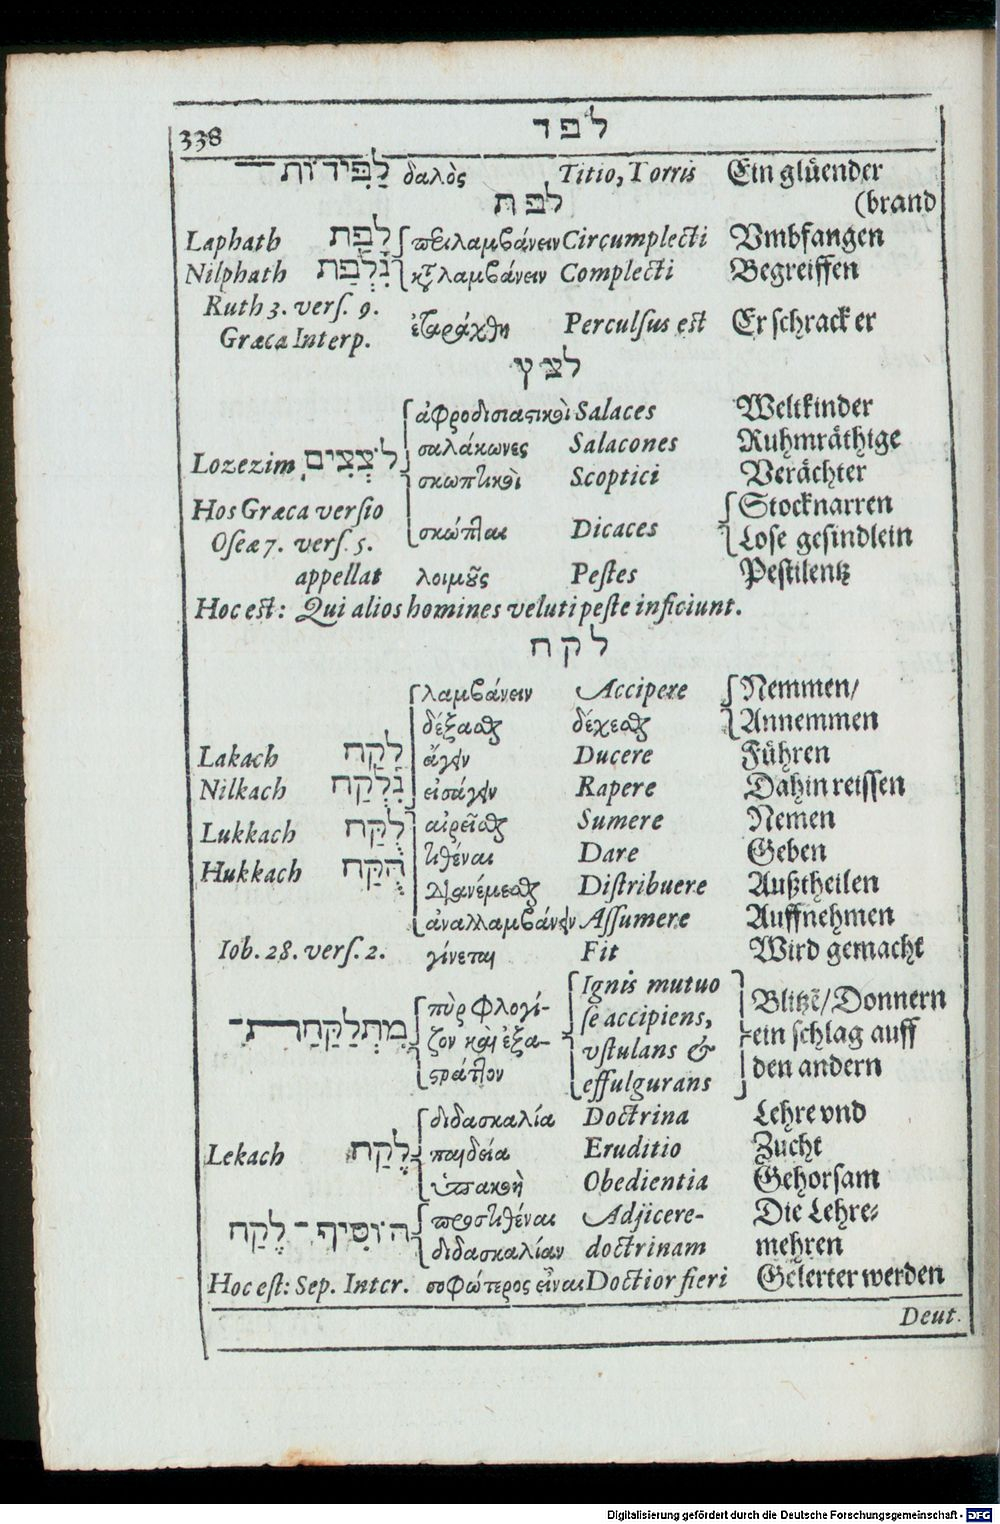 338 לפד
לַפִּידוֹת δαλὸς Titio, Torris Ein glüender
לפת (brand
Laphath לָפַת περιλαμβάνειν Circumplecti Vmbfangen
Nilphath נִלְפַּת καταλαμβάνειν Complecti Begreiffen
Ruth 3. verſ. 9.
ἐταράχθη Perculſus est Er schrack er
Græca Interp.
לצץ
ἀφροδισιαστικοὶ Salaces Weltkinder
σαλάκωνες Salacones Ruhmräthige
Lozezim לֹצְצִים σκωπτικοὶ Scoptici Verächter
Hos Græca verſio Stocknarren
σκώπται Dicaces
Oſeæ 7. verſ. 5. Lose gesindlein
appellat λοιμοὺς Peſtes Pestilentz
Hoc est: Qui alios homines veluti peſte inficiunt.
לקח
λαμβάνειν Accipere Nemmen/
δέξασθαι δέχεσθαι Annemmen
Lakach לָקַח ἄγειν Ducere Führen
Nilkach נִלְקַח εἰσάγειν Rapere Dahin reissen
Lukkach לֻקַּח αἱρεῖσθαι Sumere Nemen
τιθέναι Dare Geben
Hukkach הֻקַּח διανέμεσθαι Diſtribuere Außtheilen
ἀναλλαμβάνειν Aſſumere Auffnehmen
Iob. 28. verſ. 2. γίνεται Fit Wird gemacht
Ignis mutuo
πὺρ φλογί- Blitzẽ/Donnern
מִתְלַקַּחַת ſe accipiens,
ζον καὶ ἐξα- ein schlag auff
vſtulans &
ςράπτον den andern
effulgurans
διδασκαλία Doctrina Lehre vnd
Lekach לֶקַח παιδεία Eruditio Zucht
ὑπακοὴ Obedientia Gehorsam
προστιθέναι Adjicere- Die Lehre-
הוֹסִיף־לֶקַח
διδασκαλίαν doctrinam mehren
Hoc eſt: Sep. Inter. σοφώτερος εἶναι Doctior fieri Gelerter werden
Deut.
Digitalisierung gefördert durch die Deutsche Forschungsgemeinschaft - DFG